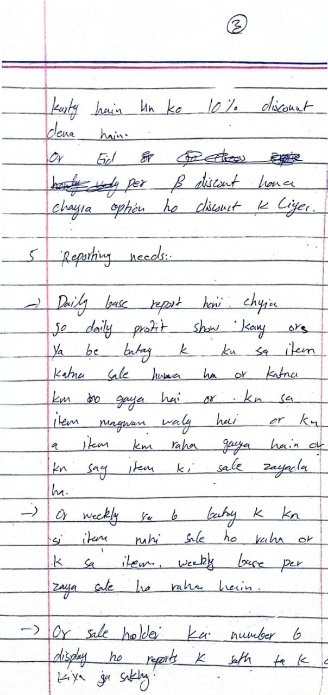 3
karty hain un ko 10% discount
dena hain.
Or Eid
per β discount hona
chayia option ho discount k Liye.
5 Reporting needs:.
→ Daily base report honi chyia
jo daily profit show kary ore
ya be batay k kn sa item
katna sale huwa ha or katna
km ho gaya hai or kn sa
item magwan waly hai or kn
a item km raha gaya hain or
kn say item ki sale zayada
ha.
→ Or weekly ya b batay k kn
si item nahi sale ho raha or
k sa item. weekly base per
zaya sale ho raha hein.
→ Or sale holder kai number b
display ho reports k sath ta k
kiya ja saky.